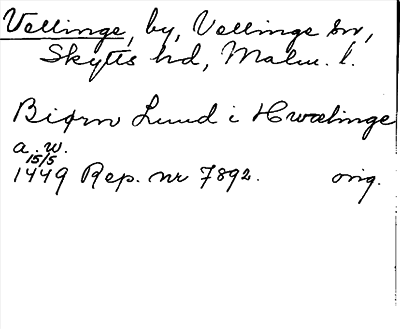 Vellinge, by, Vellinge sn,
Skytts hd, Malm. l.
Biørn Lund i Hwælinge
a. w.
15/5
1449 Rep. nr 7892. orig.